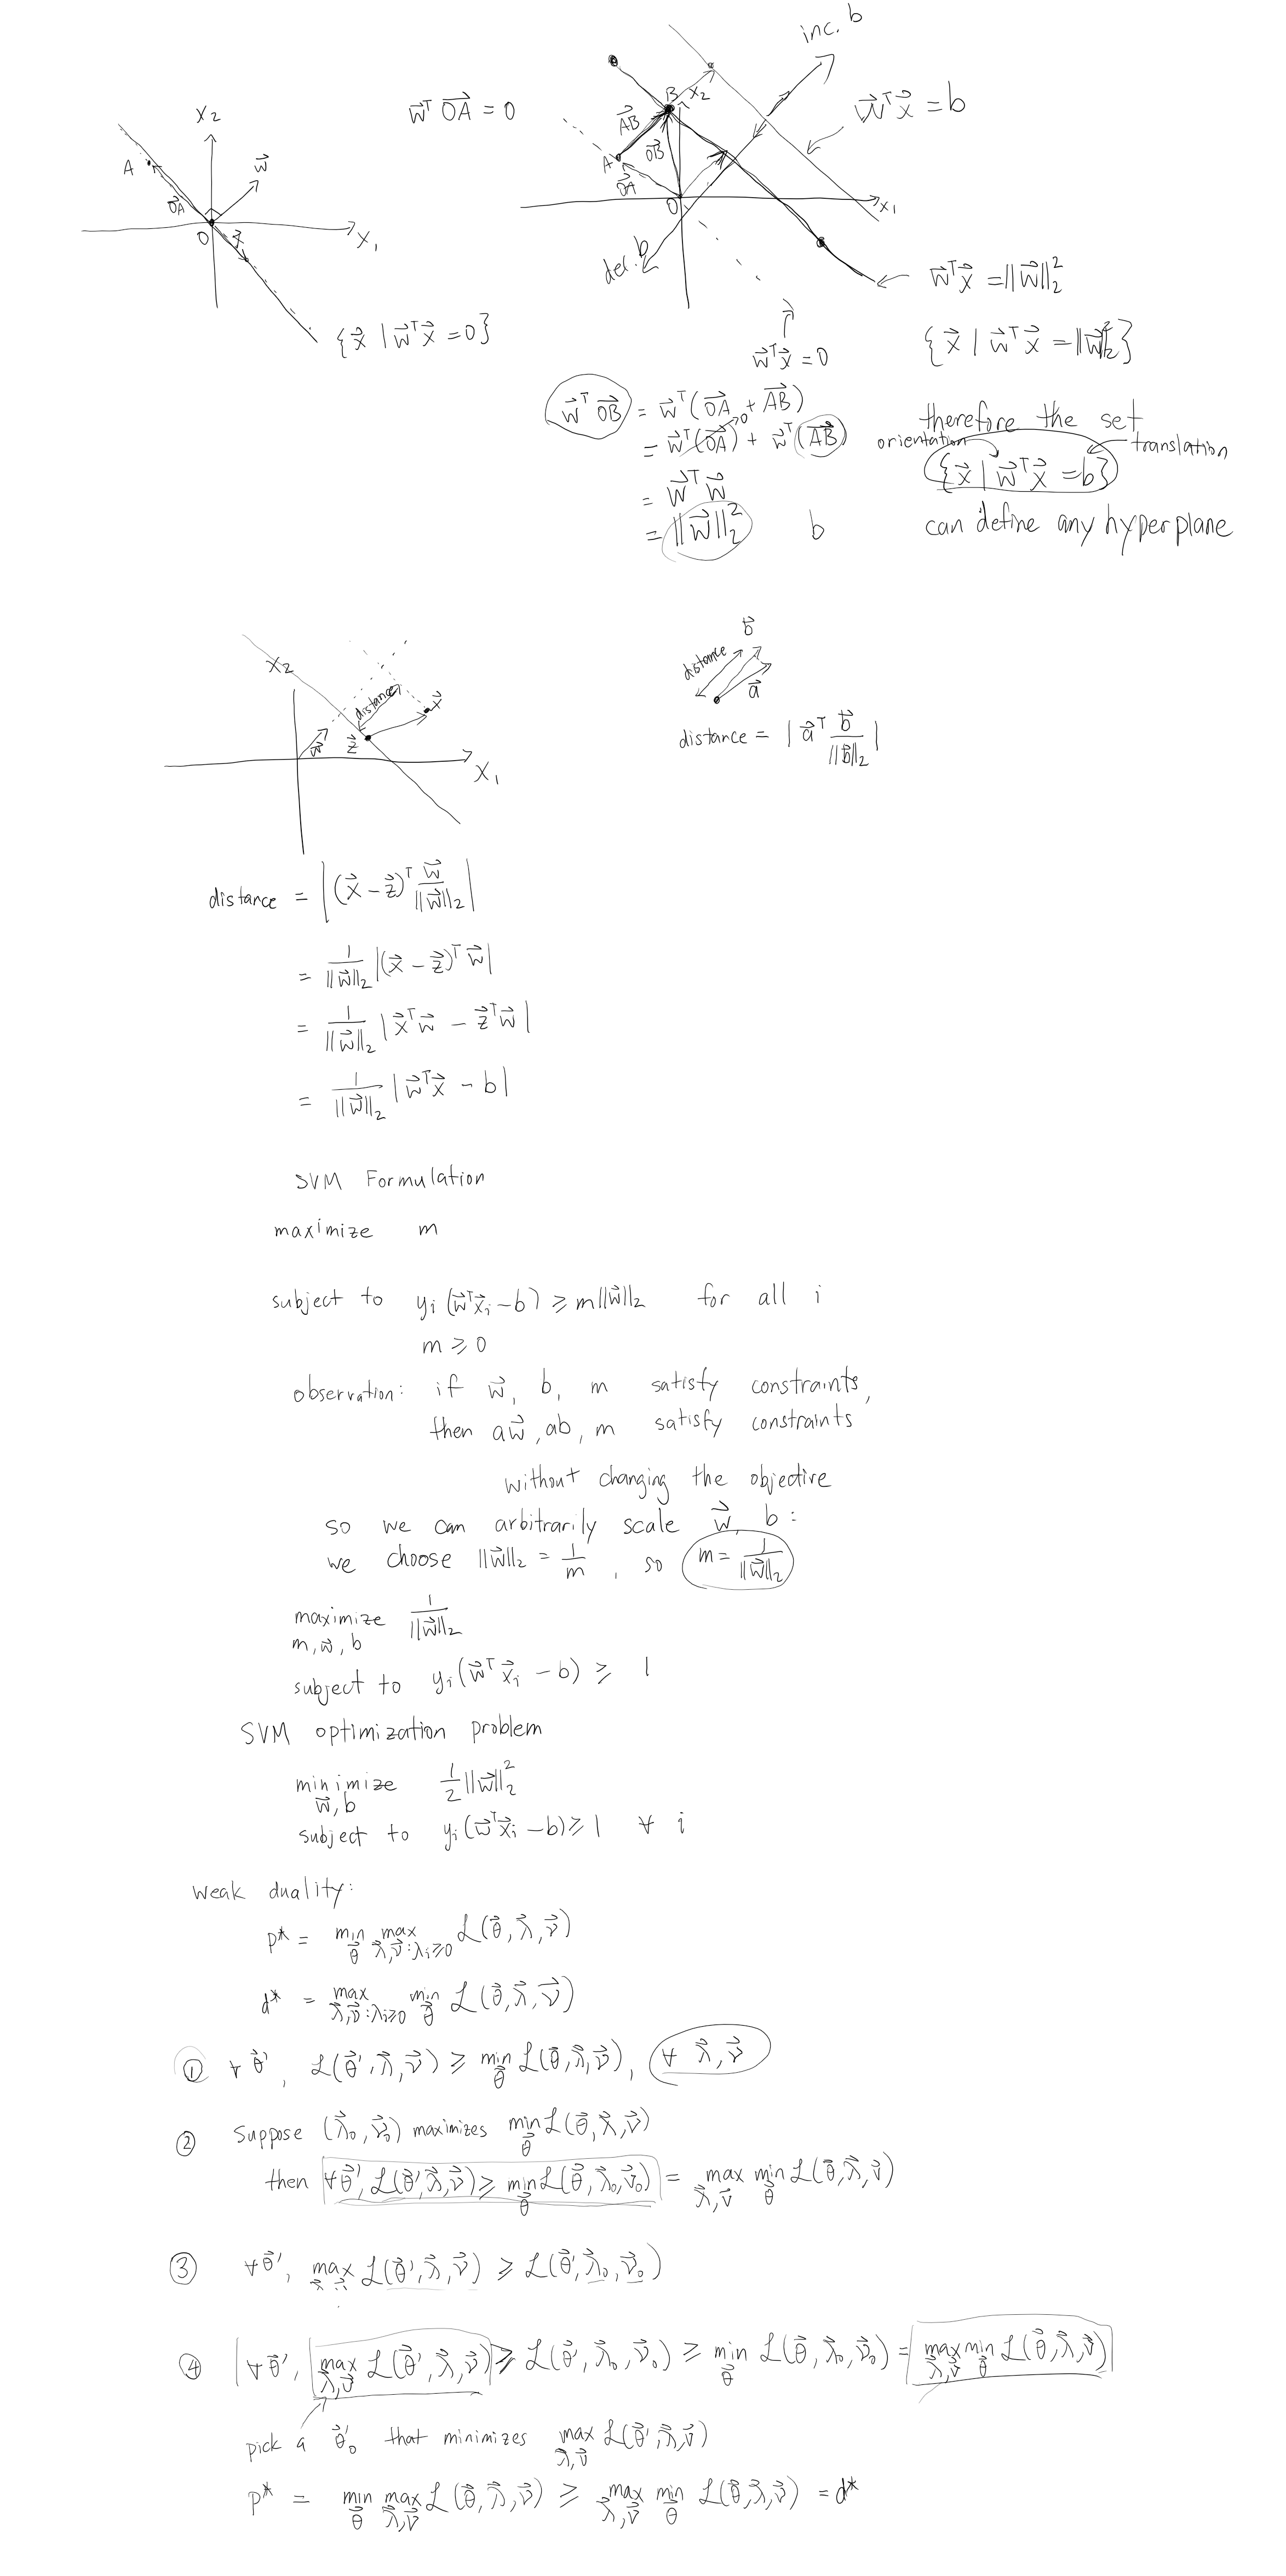 x₂
A
w⃗
OA⃗
O
x⃗
x₁
{x⃗ | w⃗ᵀx⃗ = 0}
w⃗ᵀ OA⃗ = 0
inc. b
B
x₂
AB⃗
A
OB⃗
OA⃗
O
x₁
dec. b
w⃗ᵀx⃗ = b
w⃗ᵀx⃗ = ||w⃗||₂²
{x⃗ | w⃗ᵀx⃗ = ||w⃗||₂²}
w⃗ᵀx⃗ = 0
w⃗ᵀ OB⃗ = w⃗ᵀ(OA⃗ + AB⃗)
= w⃗ᵀ(OA⃗) 0 + w⃗ᵀ(AB⃗)
= w⃗ᵀw⃗
= ||w⃗||₂² b
therefore the set
orientation translation
{x⃗ | w⃗ᵀx⃗ = b}
can define any hyperplane
x₂
distance
x⃗
w⃗
z⃗
x₁
b⃗
distance
a⃗
distance = | a⃗ᵀ b⃗/||b⃗||₂ |
distance = | (x⃗ - z⃗)ᵀ w⃗/||w⃗||₂ |
= 1/||w⃗||₂ |(x⃗ - z⃗)ᵀ w⃗|
= 1/||w⃗||₂ | x⃗ᵀw⃗ - z⃗ᵀw⃗ |
= 1/||w⃗||₂ | w⃗ᵀx⃗ - b |
SVM Formulation
maximize m
subject to yᵢ (w⃗ᵀx⃗ᵢ - b) ≥ m||w⃗||₂ for all i
m ≥ 0
observation: if w⃗, b, m satisfy constraints,
then aw⃗, ab, m satisfy constraints
without changing the objective
so we can arbitrarily scale w⃗, b:
we choose ||w⃗||₂ = 1/m, so m = 1/||w⃗||₂
maximize 1/||w⃗||₂
m, w⃗, b
subject to yᵢ(w⃗ᵀx⃗ᵢ - b) ≥ 1
SVM optimization problem
minimize ½||w⃗||₂²
w⃗, b
subject to yᵢ(w⃗ᵀx⃗ᵢ - b) ≥ 1 ∀ i
weak duality:
p* = min_θ⃗ max_λ⃗,ν⃗:λᵢ≥0 ℒ(θ⃗, λ⃗, ν⃗)
d* = max_λ⃗,ν⃗:λᵢ≥0 min_θ⃗ ℒ(θ⃗, λ⃗, ν⃗)
① ∀ θ⃗', ℒ(θ⃗', λ⃗, ν⃗) ≥ min_θ⃗ ℒ(θ⃗, λ⃗, ν⃗), ∀ λ⃗, ν⃗
② Suppose (λ⃗₀, ν⃗₀) maximizes min_θ⃗ ℒ(θ⃗, λ⃗, ν⃗)
then ∀θ⃗', ℒ(θ⃗', λ⃗, ν⃗) ≥ min_θ⃗ ℒ(θ⃗, λ⃗₀, ν⃗₀) = max_λ⃗,ν⃗ min_θ⃗ ℒ(θ⃗, λ⃗, ν⃗)
③ ∀θ⃗', max_λ⃗,ν⃗ ℒ(θ⃗', λ⃗, ν⃗) ≥ ℒ(θ⃗', λ⃗₀, ν⃗₀)
④ ∀θ⃗', max_λ⃗,ν⃗ ℒ(θ⃗', λ⃗, ν⃗) ≥ ℒ(θ⃗', λ⃗₀, ν⃗₀) ≥ min_θ⃗ ℒ(θ⃗, λ⃗₀, ν⃗₀) = max_λ⃗,ν⃗ min_θ⃗ ℒ(θ⃗, λ⃗, ν⃗)
pick a θ⃗'₀ that minimizes max_λ⃗,ν⃗ ℒ(θ⃗', λ⃗, ν⃗)
p* = min_θ⃗ max_λ⃗,ν⃗ ℒ(θ⃗, λ⃗, ν⃗) ≥ max_λ⃗,ν⃗ min_θ⃗ ℒ(θ⃗, λ⃗, ν⃗) = d*